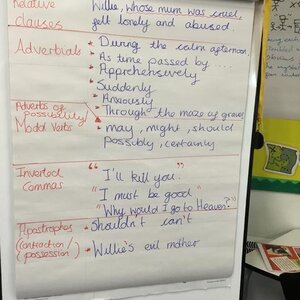 Relative Willie, whose mum was cruel,
clauses felt lonely and abused
Adverbials * During the calm afternoon,
* As time passed by ...
* Apprehensively
* Suddenly
* Anxiously
* Through the maze of graves
Adverbs of
Possibility/ * may, might, should
Modal Verbs possibly, certainly
Inverted " I'll kill you. "
Commas " I must be good "
" Why would I go to Heaven? "
Apostrophes * Shouldn't can't
(contraction/
possession) * Willie's evil mother